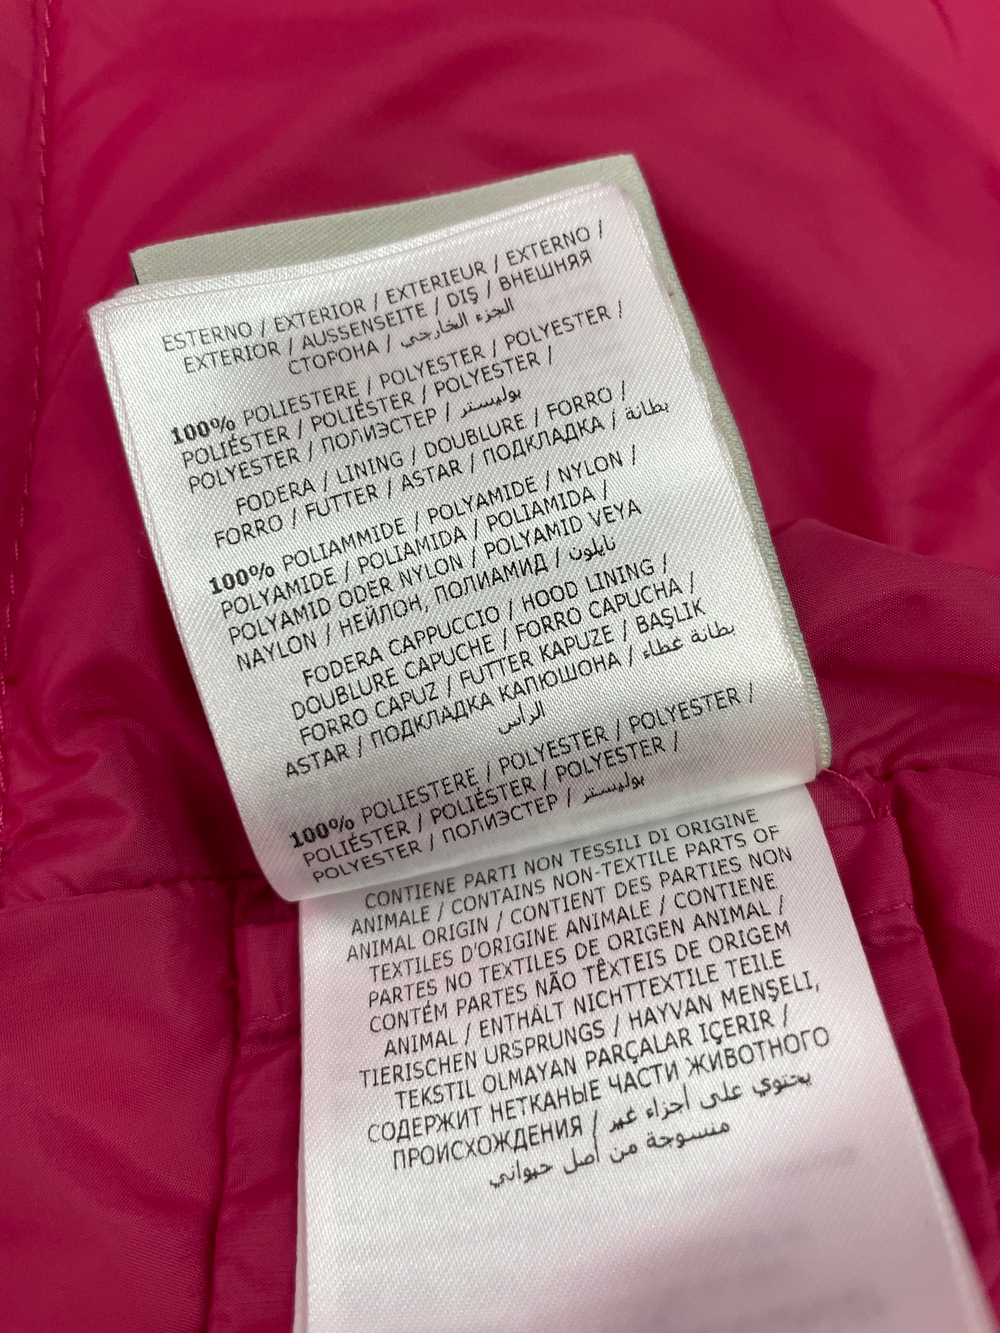 ESTERNO / EXTERIOR / EXTERIEUR / EXTERNO /
EXTERIOR / AUSSENSEITE / DIŞ / ВНЕШНЯЯ
СТОРОНА / الجزء الخارجي
100% POLIESTERE / POLYESTER / POLYESTER /
POLIÉSTER / POLIÉSTER / POLYESTER /
POLYESTER / ПОЛИЭСТЕР / بوليستر
FODERA / LINING / DOUBLURE / FORRO /
FORRO / FUTTER / ASTAR / ПОДКЛАДКА / بطانة
100% POLIAMMIDE / POLYAMIDE / NYLON /
POLYAMIDE / POLIAMIDA / POLIAMIDA /
POLYAMID ODER NYLON / POLYAMID VEYA
NAYLON / НЕЙЛОН, ПОЛИАМИД / نايلون
FODERA CAPPUCCIO / HOOD LINING /
DOUBLURE CAPUCHE / FORRO CAPUCHA /
FORRO CAPUZ / FUTTER KAPUZE / BAŞLIK
ASTAR / ПОДКЛАДКА КАПЮШОНА / بطانة غطاء
الرأس
100% POLIESTERE / POLYESTER / POLYESTER /
POLIÉSTER / POLIÉSTER / POLYESTER /
POLYESTER / ПОЛИЭСТЕР / بوليستر
CONTIENE PARTI NON TESSILI DI ORIGINE
ANIMALE / CONTAINS NON-TEXTILE PARTS OF
ANIMAL ORIGIN / CONTIENT DES PARTIES NON
TEXTILES D'ORIGINE ANIMALE / CONTIENE
PARTES NO TEXTILES DE ORIGEN ANIMAL /
CONTÉM PARTES NÃO TÊXTEIS DE ORIGEM
ANIMAL / ENTHÄLT NICHTTEXTILE TEILE
TIERISCHEN URSPRUNGS / HAYVAN MENŞELİ,
TEKSTIL OLMAYAN PARÇALAR IÇERIR /
СОДЕРЖИТ НЕТКАНЫЕ ЧАСТИ ЖИВОТНОГО
ПРОИСХОЖДЕНИЯ / يحتوي على أجزاء غير
منسوجة من أصل حيواني